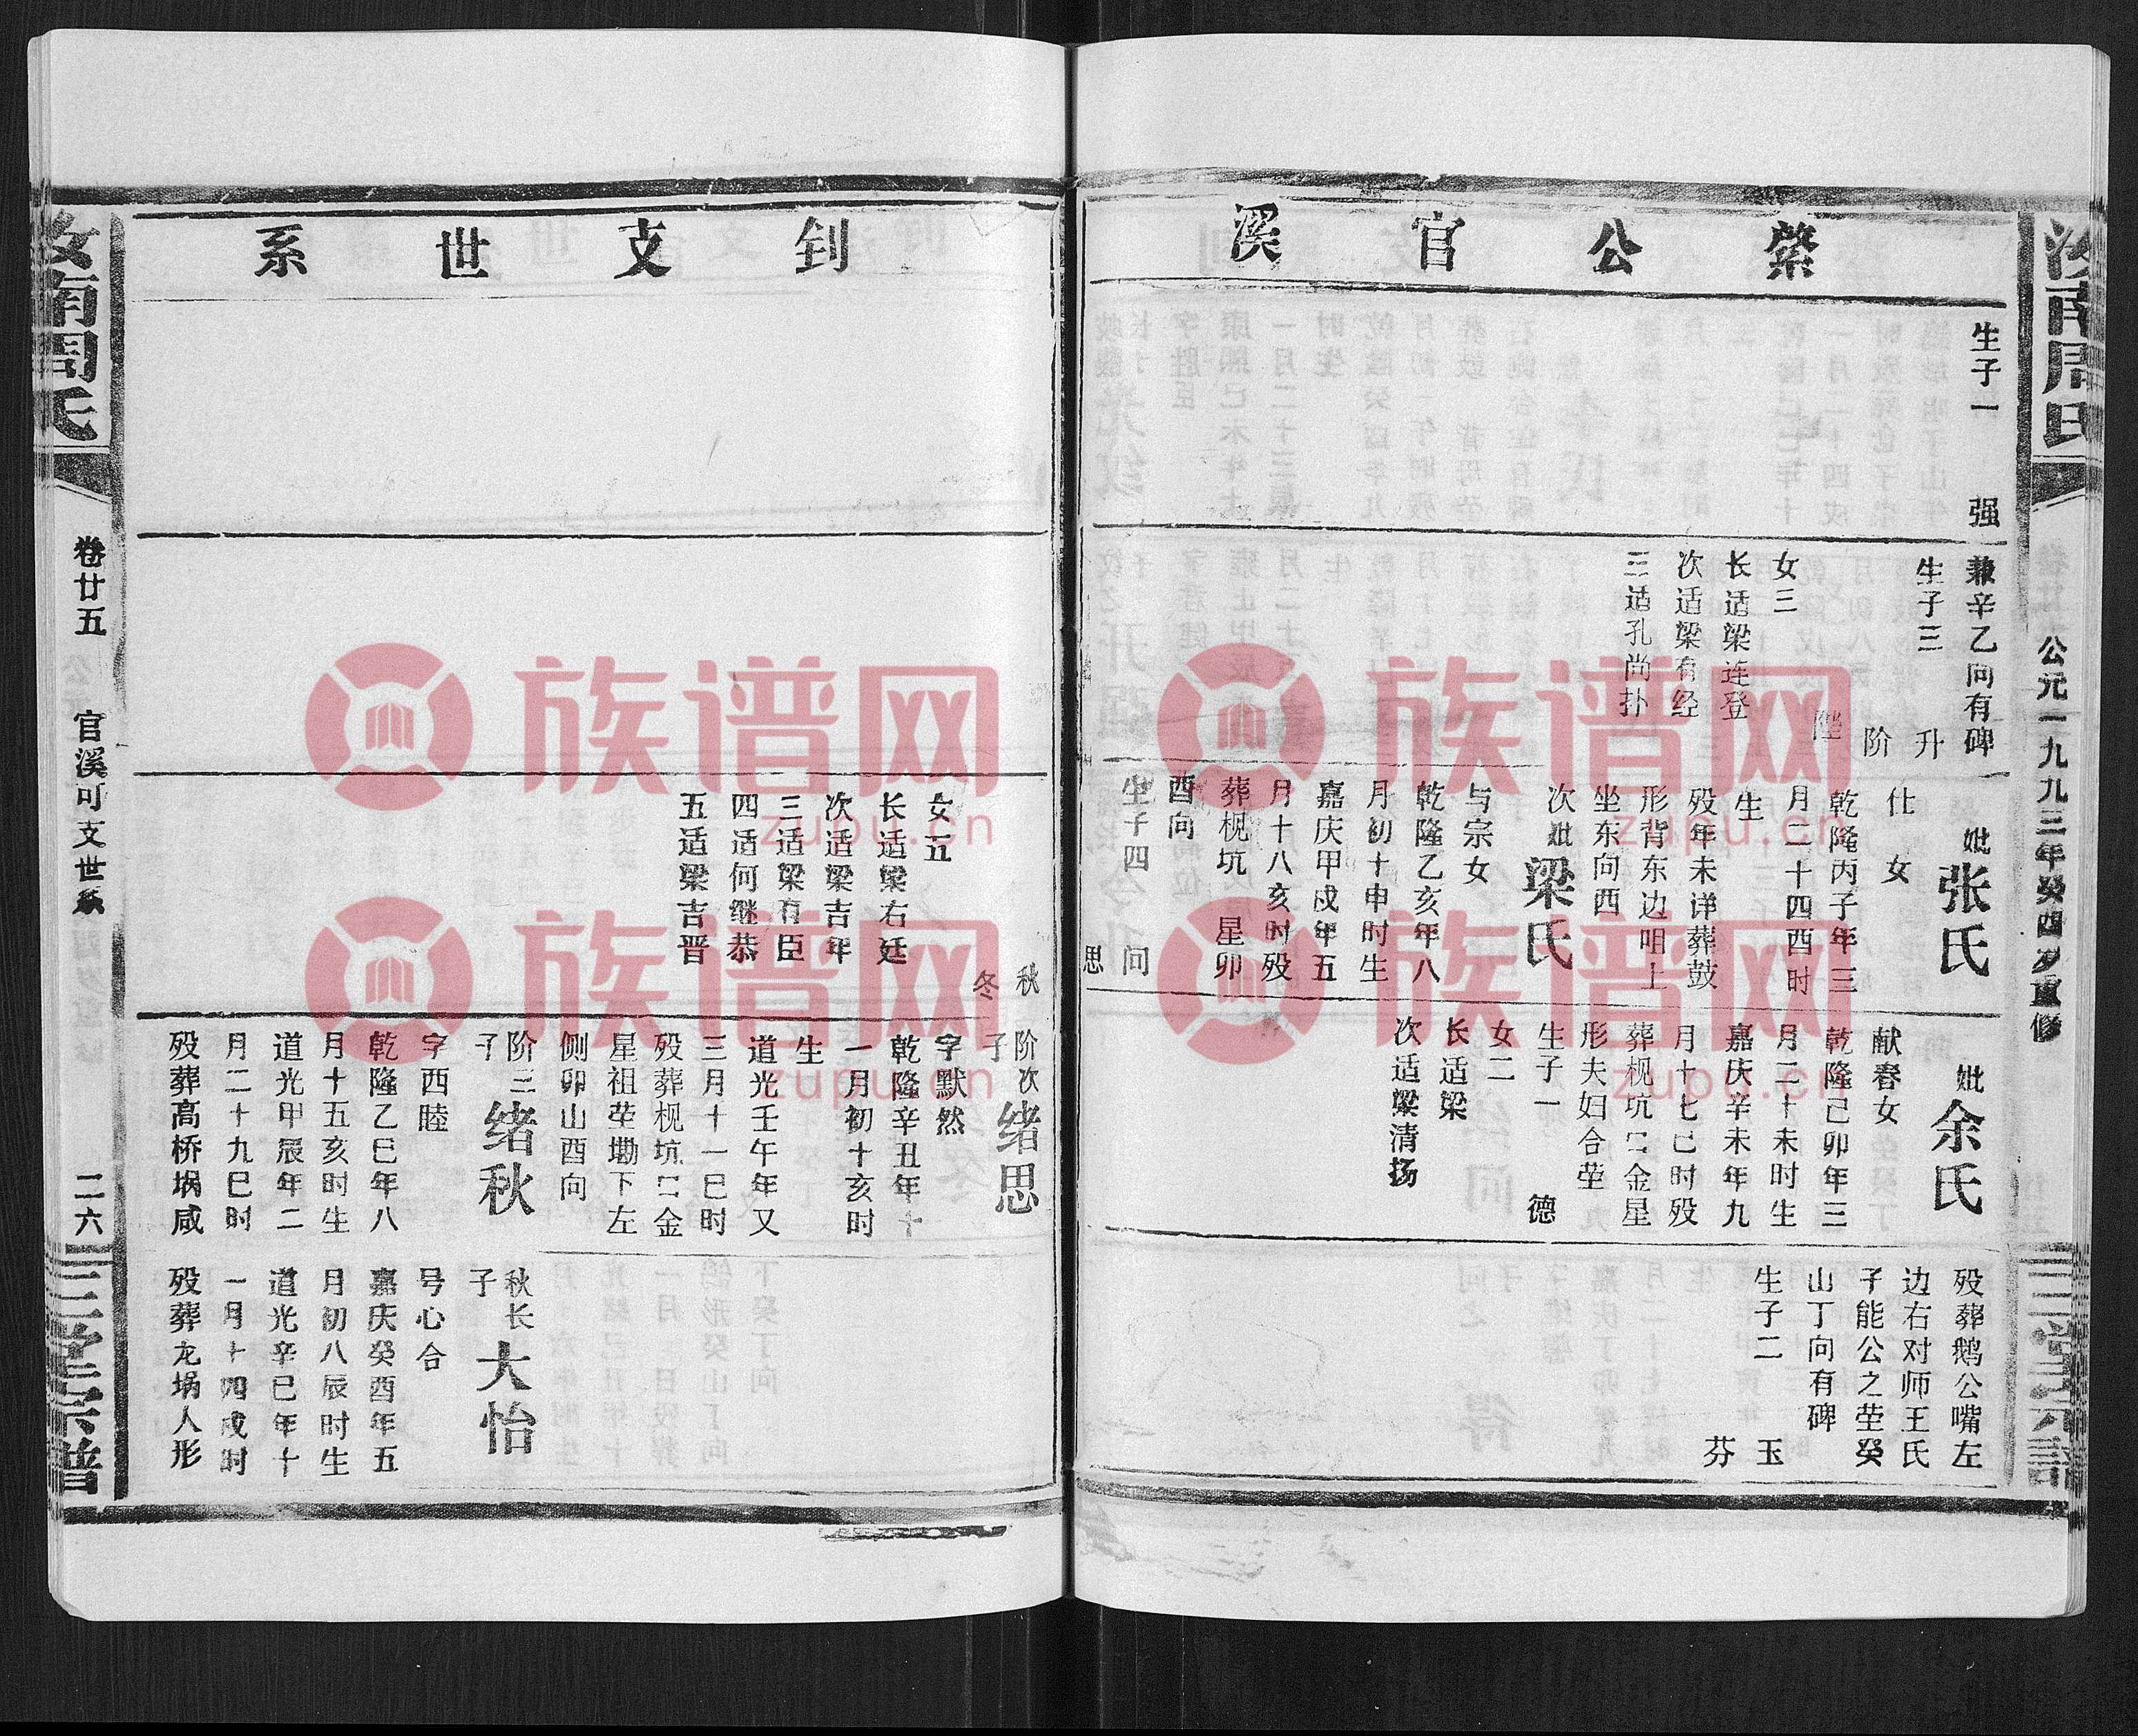 汝南周氏
公元一九九三年癸酉岁重修
三堂宗谱
綮公官溪
生子一
强
兼辛乙向有碑
生子三
升
阶
陞
女三
长适梁连登
次适梁有经
三适孔尚扑
妣张氏
仕女
乾隆丙子年三
月二十四酉时
生
殁年未详葬鼓
形背东边咀上
坐东向西
次妣梁氏
与宗女
乾隆乙亥年八
月初十申时生
嘉庆甲戍年五
月十八亥时殁
葬枧坑 星卯
酉向
生子四
问
思
妣余氏
献春女
乾隆己卯年三
月二十未时生
嘉庆辛未年九
月十七巳时殁
葬枧坑口金星
形夫妇合茔
生子一
德
女二
长适梁
次适梁清扬
殁葬鹅公嘴左
边右对师王氏
子能公之茔癸
山丁向有碑
生子二
玉
芬
钊支世系
秋
冬
女五
长适梁右廷
次适梁吉年
三适梁有臣
四适何继恭
五适梁吉晋
阶次子
绪思
字默然
乾隆辛丑年十
一月初十亥时
生
道光壬午年又
三月十一巳时
殁葬枧坑口金
星祖茔墈下左
侧卯山酉向
阶三子
绪秋
字西睦
乾隆乙巳年八
月十五亥时生
道光甲辰年二
月二十九巳时
殁葬高桥埚咸
秋长子
大怡
号心合
嘉庆癸酉年五
月初八辰时生
道光辛巳年十
一月十四戍时
殁葬龙埚人形
汝南周氏
卷廿五
官溪可支世系
二六
三堂宗谱
族谱网
zupu.cn
族谱网
zupu.cn
族谱网
zupu.cn
族谱网
zupu.cn